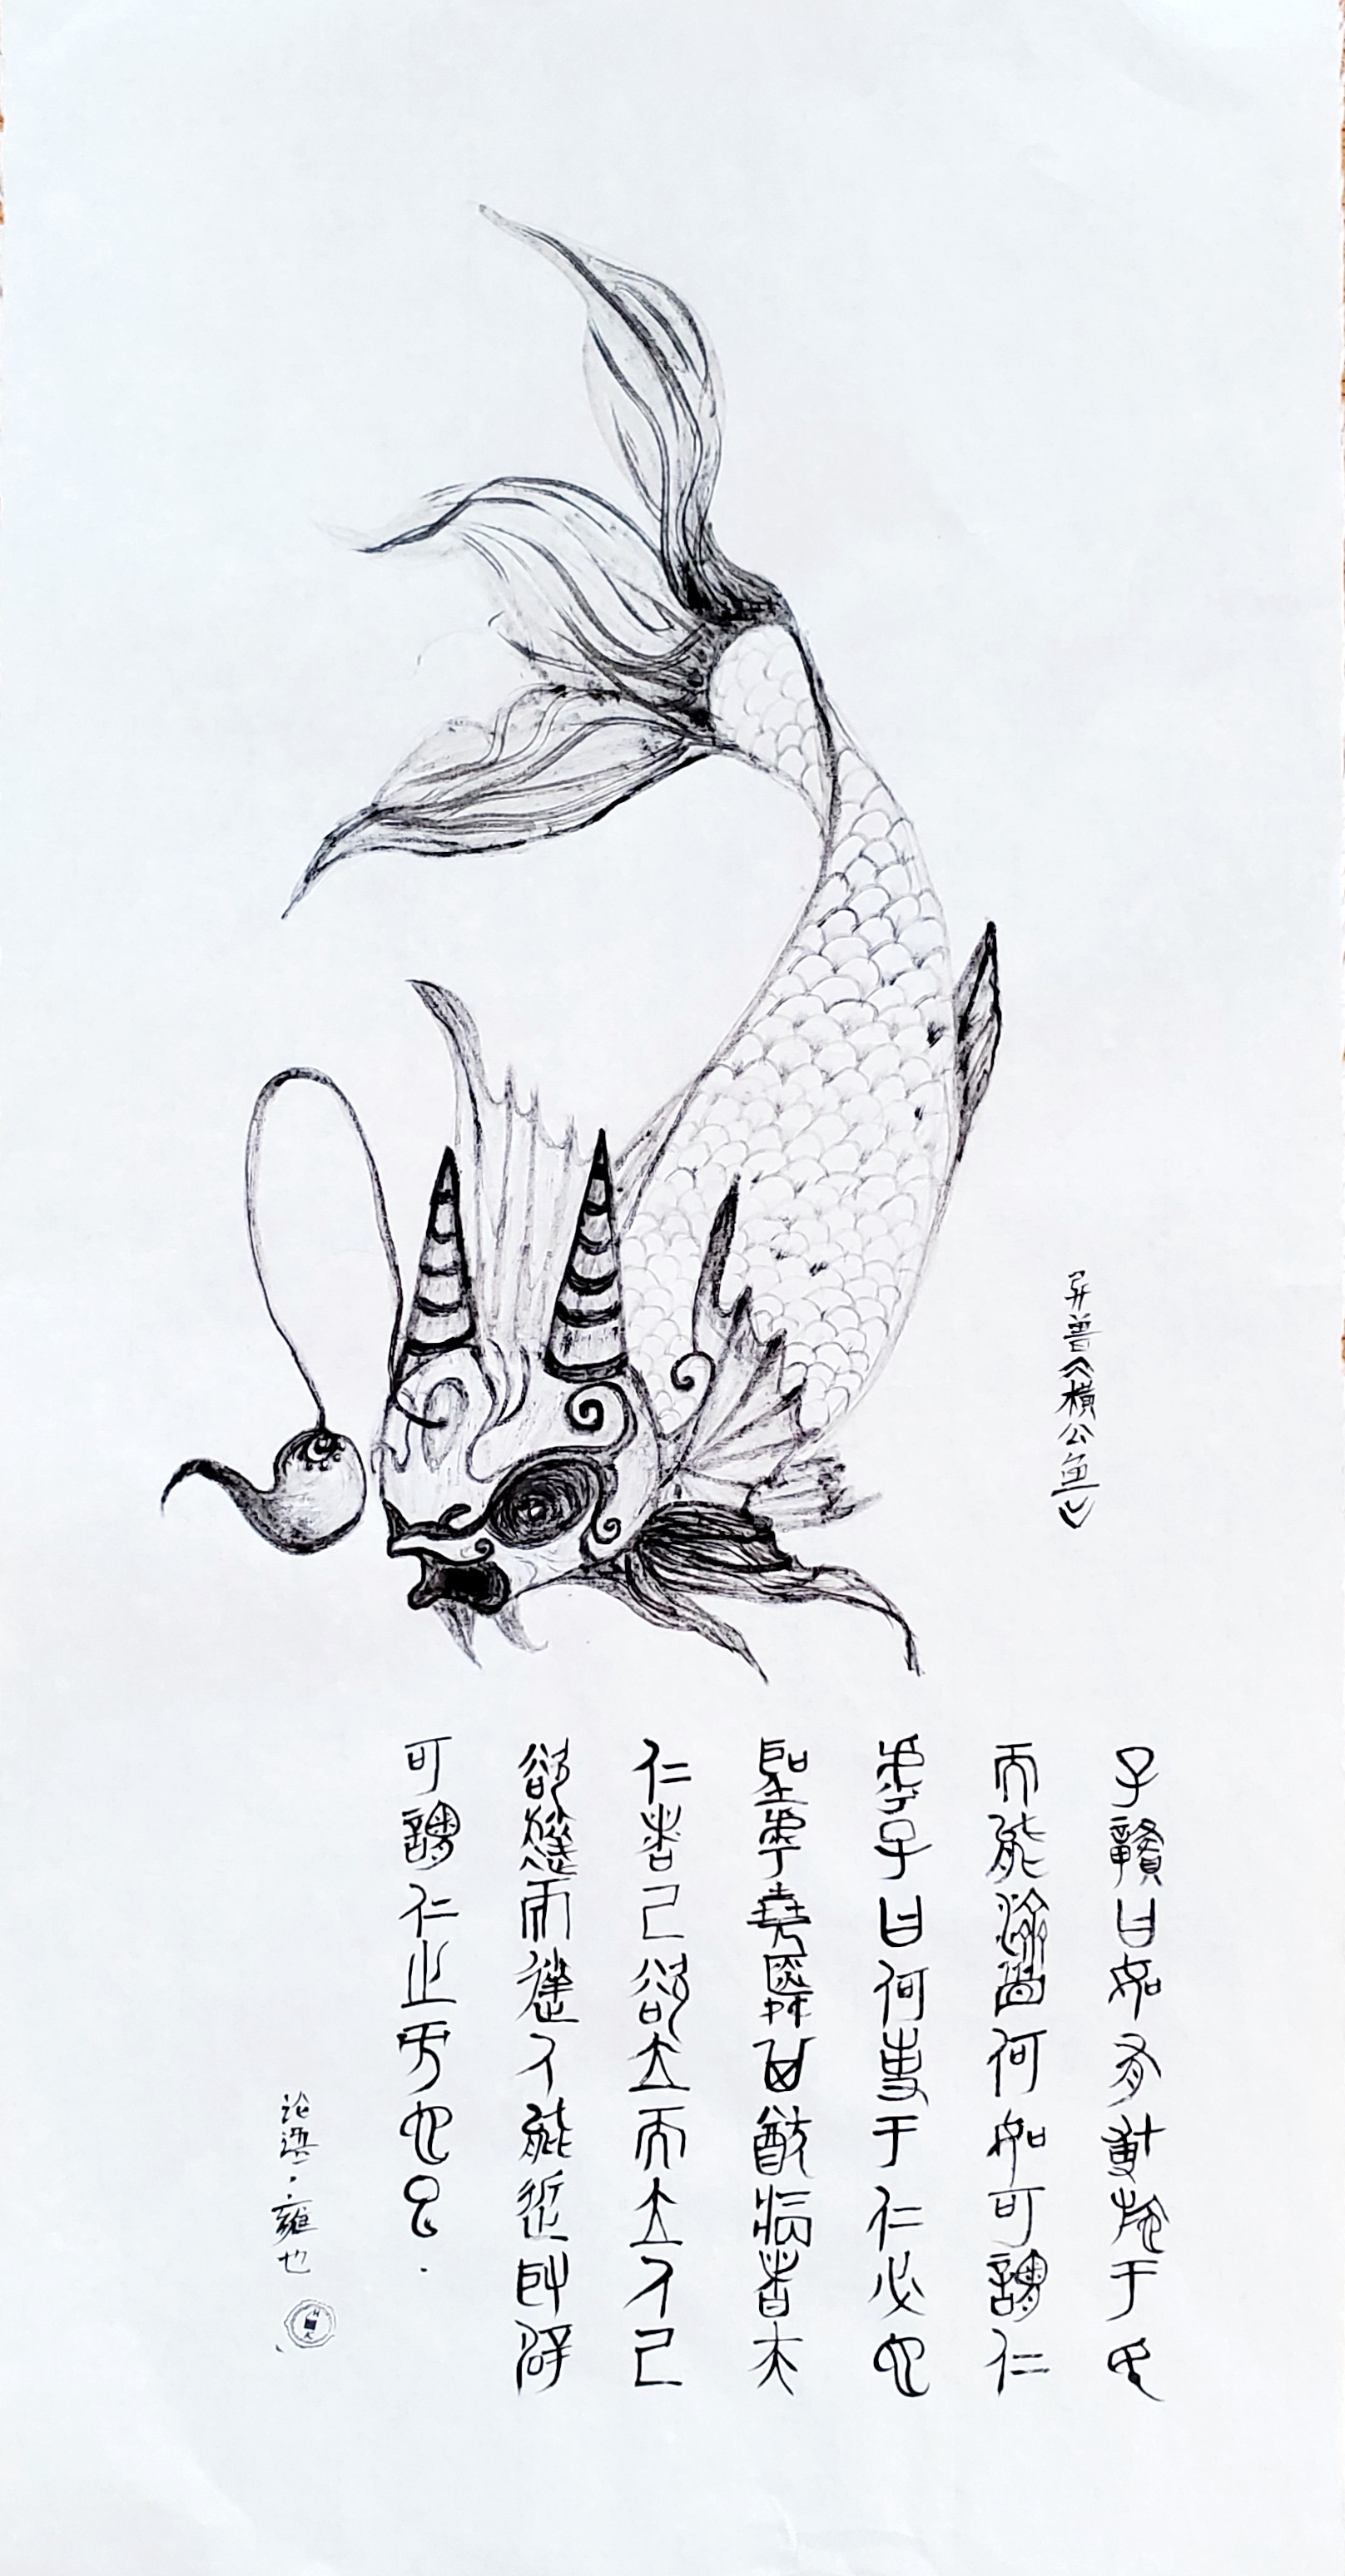 异兽《橫公鱼》
子贛曰如有博施于民
而能濟眾何如可謂仁
乎子曰何事于仁必也
聖乎堯舜其猶病者夫
仁者己欲立而立人己
欲達而達人能近取譬
可謂仁之方也已.
论语·雍也